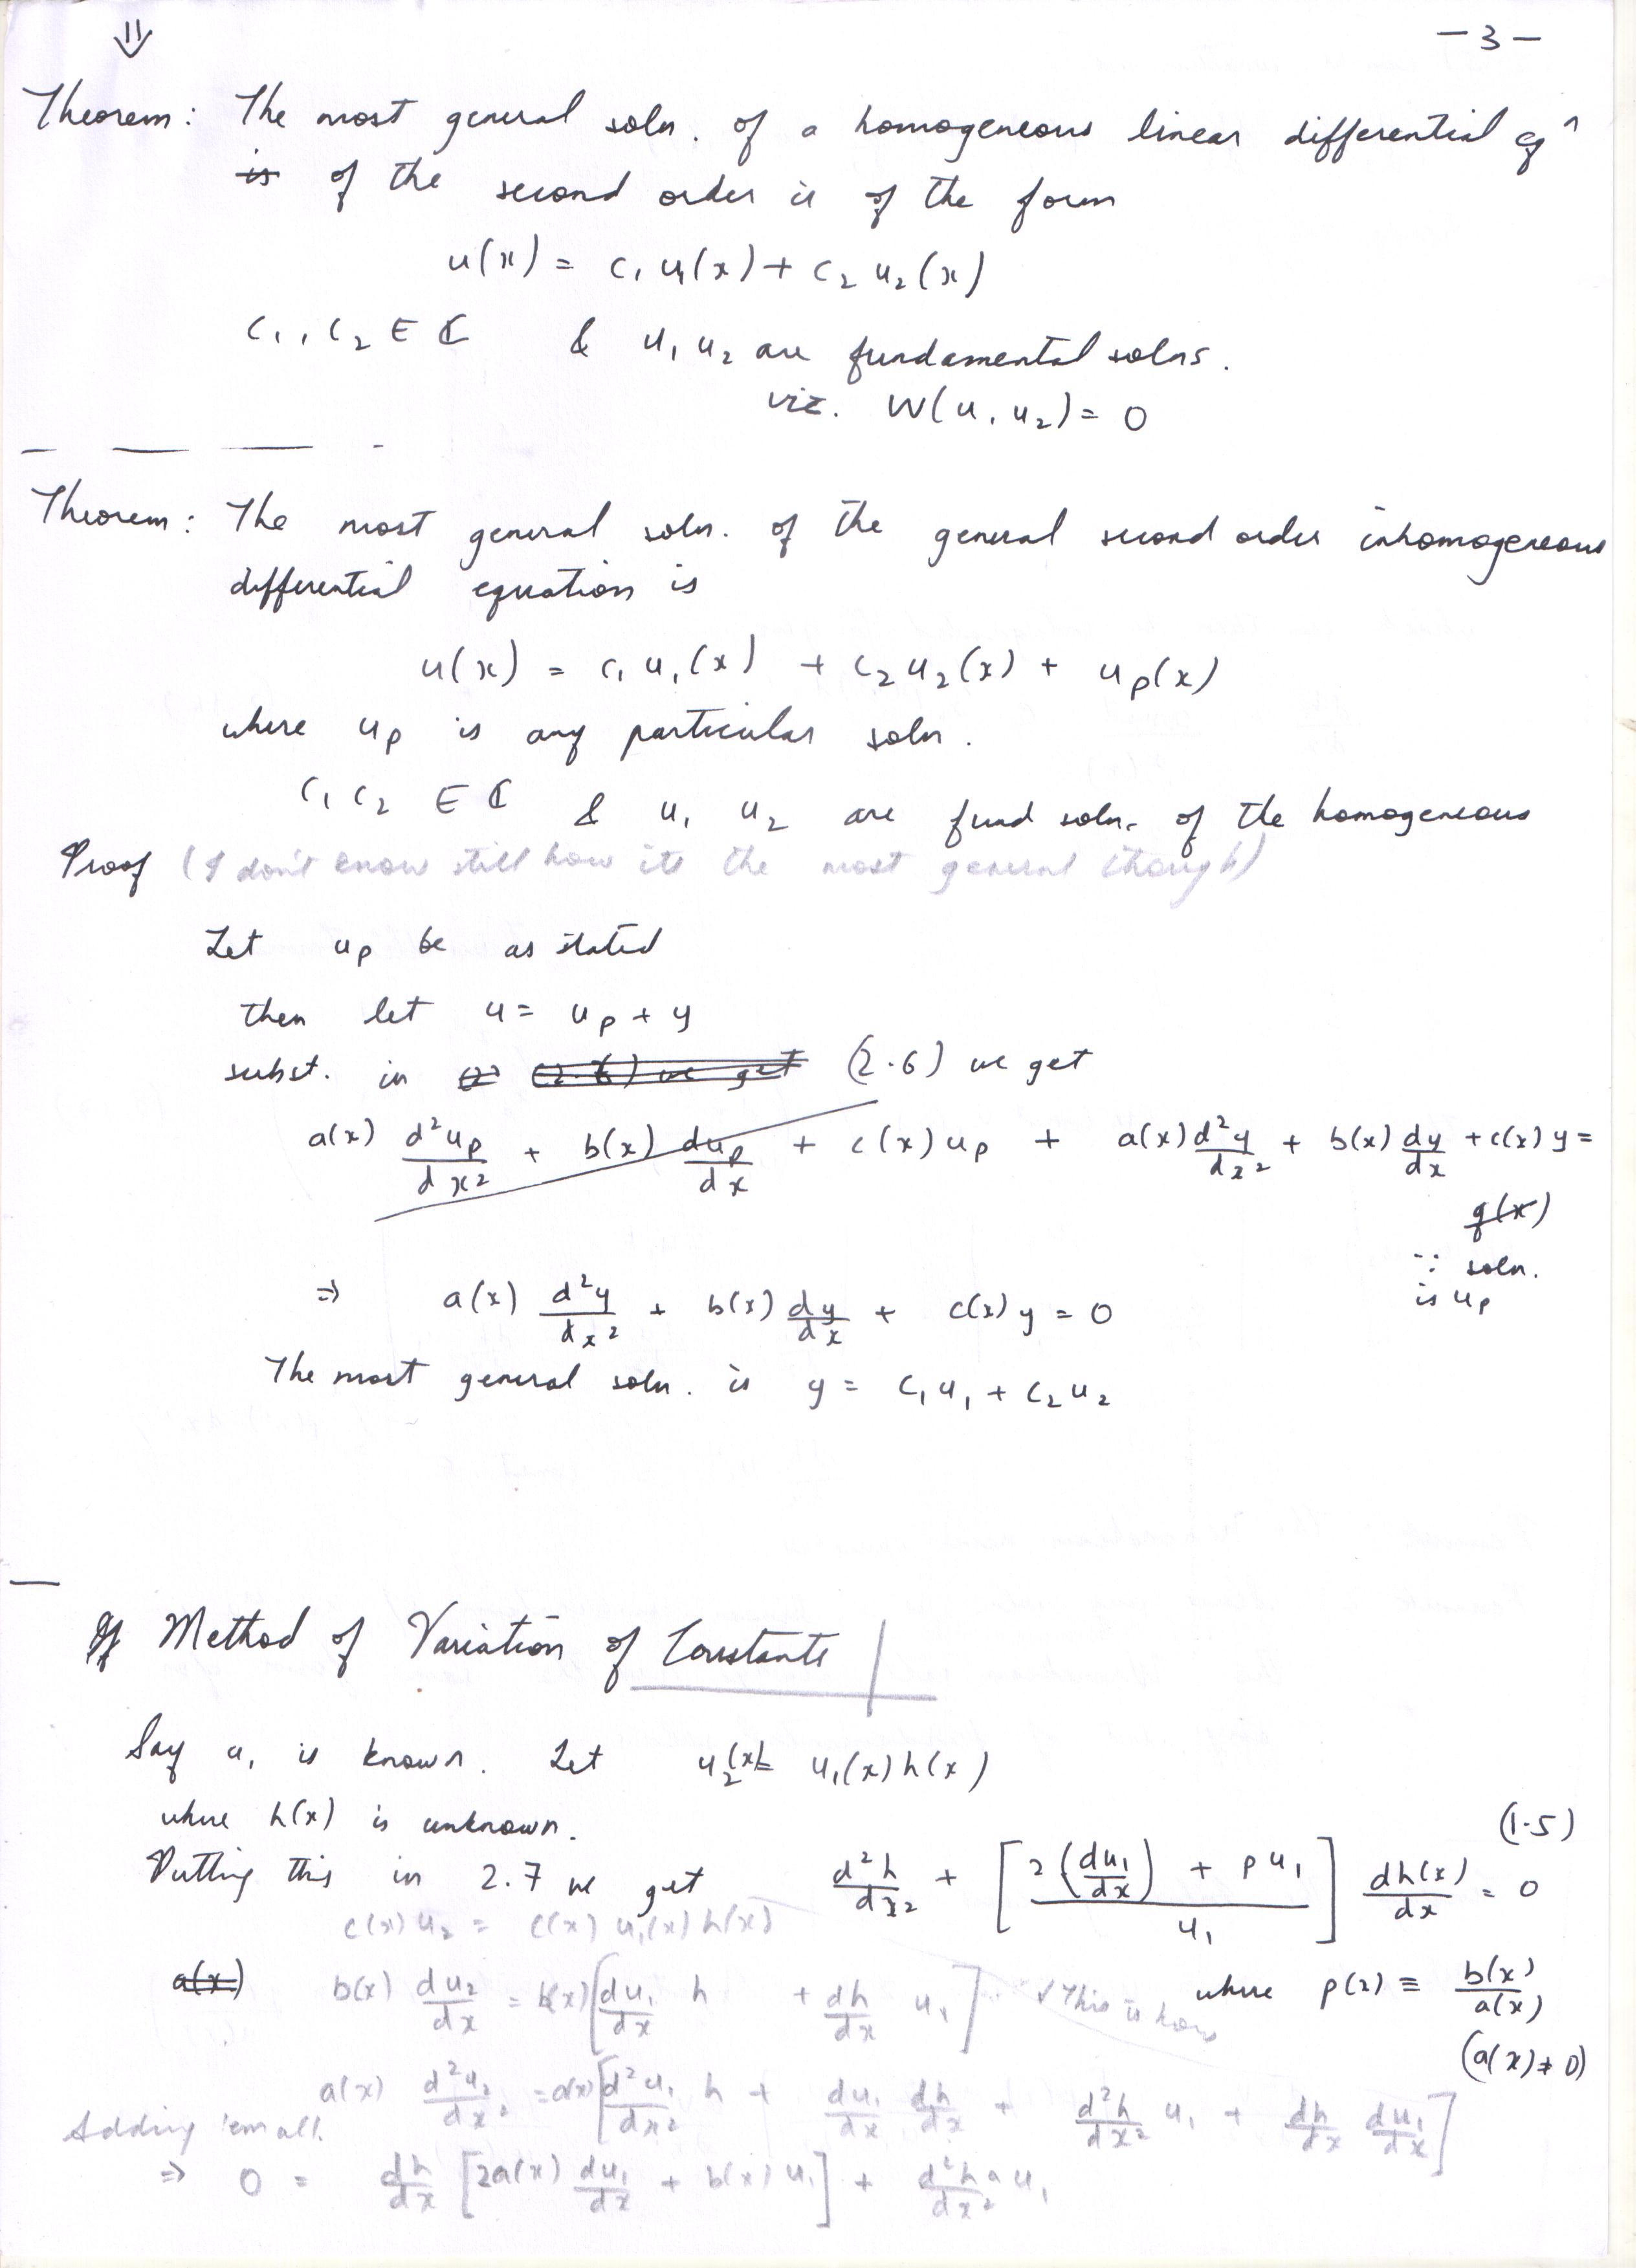 ⇓ -3-
Theorem: The most general soln. of a homogeneous linear differential eqn
is of the second order is of the form
u(x) = c₁ u₁(x) + c₂ u₂(x)
c₁, c₂ ∈ ℂ & u₁ u₂ are fundamental solns.
viz. W(u₁ u₂) = 0
Theorem: The most general soln. of the general second order inhomogeneous
differential equation is
u(x) = c₁ u₁(x) + c₂ u₂(x) + uₚ(x)
where uₚ is any particular soln.
c₁ c₂ ∈ ℂ & u₁ u₂ are fund soln. of the homogeneous
Proof (I don't know still how its the most general though)
Let uₚ be as stated
then let u = uₚ + y
subst. in (2.6) we get (2.6) we get
a(x) d²uₚ/dx² + b(x) duₚ/dx + c(x) uₚ + a(x) d²y/dx² + b(x) dy/dx + c(x) y =
g(x)
∵ soln.
is uₚ
⇒ a(x) d²y/dx² + b(x) dy/dx + c(x) y = 0
The most general soln. is y = c₁ u₁ + c₂ u₂
Method of Variation of Constants
Say u₁ is known. Let u₂(x) = u₁(x) h(x)
where h(x) is unknown.
(1.5)
Putting this in 2.7 we get d²h/dx² + [ (2(du₁/dx) + p u₁) / u₁ ] dh(x)/dx = 0
c(x) u₂ = c(x) u₁(x) h(x)
a(x) b(x) du₂/dx = b(x) [ du₁/dx h + dh/dx u₁ ] This is how where p(x) ≡ b(x)/a(x)
(a(x) ≠ 0)
a(x) d²u₂/dx² = a(x) [ d²u₁/dx² h + du₁/dx dh/dx + d²h/dx² u₁ + dh/dx du₁/dx ]
Adding 'em all.
⇒ 0 = dh/dx [ 2a(x) du₁/dx + b(x) u₁ ] + d²h/dx² a u₁